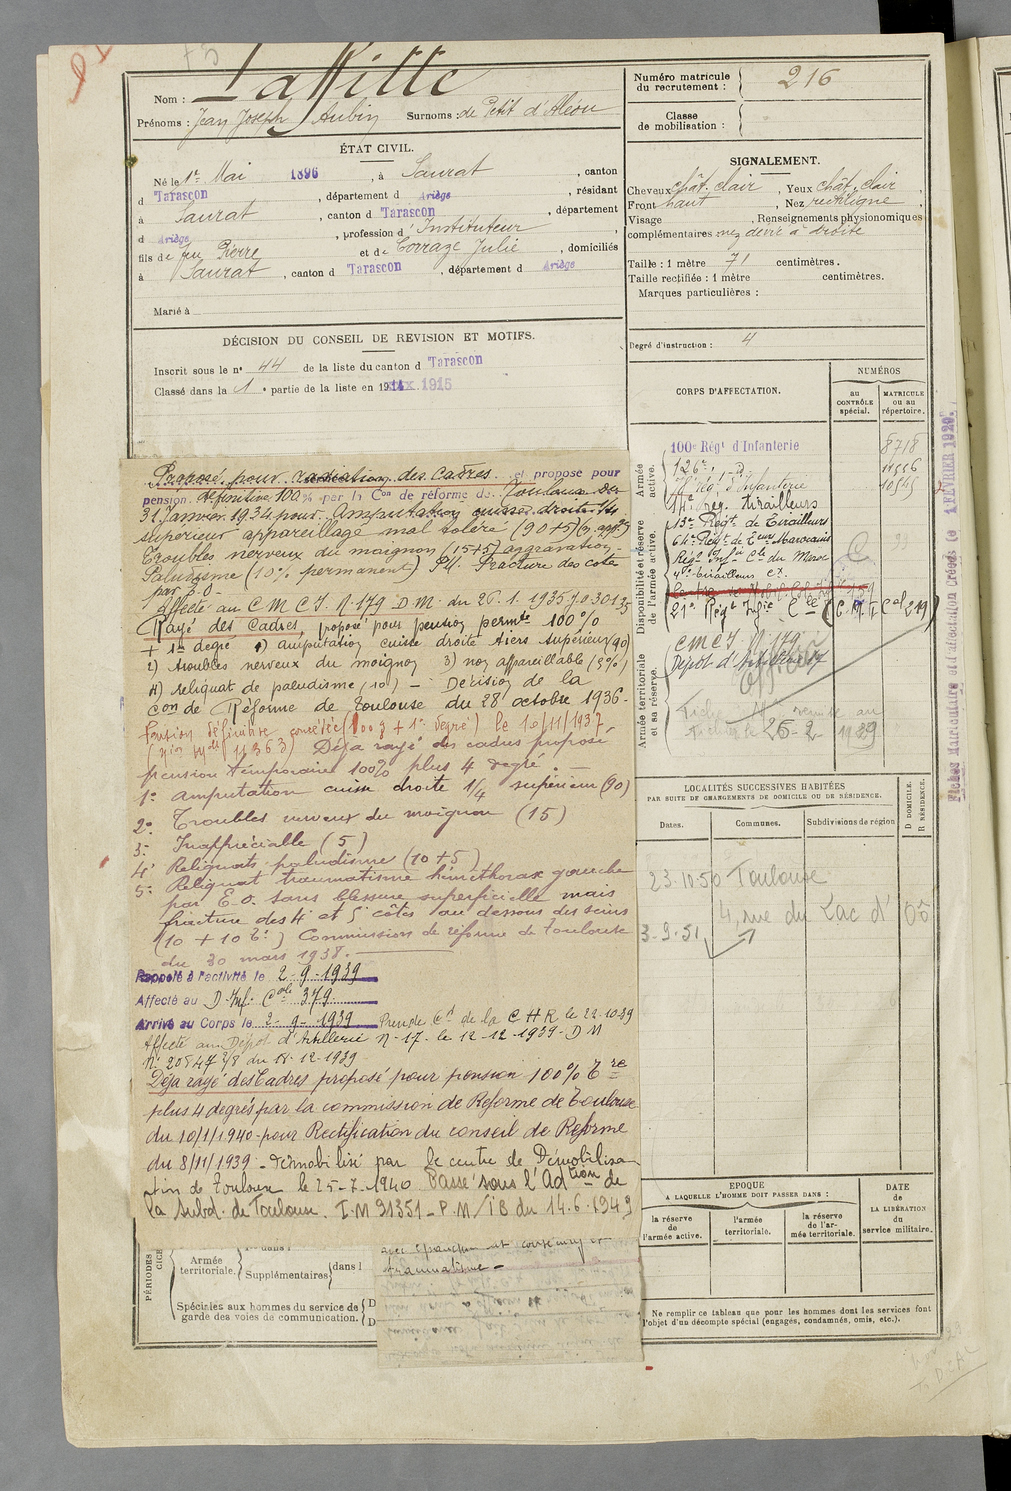 Nom : Laffitte
Prénoms : Jean Joseph Aubin Surnoms : de Petit d'Aléou
Numéro matricule du recrutement : 216
Classe de mobilisation :
ÉTAT CIVIL.
Né le 1er Mai 1896, à Saurat, canton
d Tarascon, département d Ariège, résidant
à Saurat, canton d Tarascon, département
d Ariège, profession d'Instituteur
fils de feu Pierre et de Corraze Julie, domiciliés
à Saurat, canton d Tarascon, département d Ariège
Marié à
SIGNALEMENT.
Cheveux chât. clair, Yeux chât. clair,
Front haut, Nez rectiligne,
Visage , Renseignements physionomiques
complémentaires : nez dévié à droite
Taille : 1 mètre 71 centimètres.
Taille rectifiée : 1 mètre centimètres.
Marques particulières :
Degré d'instruction : 4
DÉCISION DU CONSEIL DE REVISION ET MOTIFS.
Inscrit sous le no 44 de la liste du canton d Tarascon
Classé dans la 1e partie de la liste en 1915
Proposé pour radiation des Cadres et propose pour
pension définitive 100 % par la Con de réforme de Toulouse du
31 Janvier 1934 pour Amputation cuisse droite 1/3
supérieur appareillage mal toléré (90+5)
Troubles nerveux du moignon (15+5) aggravation
Paludisme (10% permanent) Fracture des cotes
par E.O.
Affecté au C M C I. N. 179 D.M. du 26.1.1935
Rayé des Cadres, proposé pour pension permte 100%
+ 1er degré 1) amputation cuisse droite tiers supérieur (90)
2) troubles nerveux du moignon 3) non appareillable (5%)
4) reliquat de paludisme (10) — Décision de la
Con de Réforme de Toulouse du 28 octobre 1936.
Pension définitive concédée (100% + 1er degré) le 10/11/1937
Déja rayé des cadres proposé
pension temporaire 100% plus 4 degré. —
1o amputation cuisse droite 1/4 supérieur (90)
2o Troubles nerveux du moignon (15)
3o Inappréciable (5)
4o Reliquats paludisme (10+5)
5o Reliquat traumatisme hémithorax gauche
par E.O. sans blessure superficielle mais
fracture des 4e et 5e côtes au dessous des seins
(10 + 10) Commission de réforme de Toulouse
du 30 mars 1938.
Rappelé à l'activité le 2-9-1939
Affecté au D. Inf. Cole 379
Arrivé au Corps le 2-9-1939 de la C H R le 22-10-39
Affecté au Dépot d'Artillerie No 17. le 12-12-1939. D M
No 20547 2/8 du 18-12-1939
Déja rayé des Cadres proposé pour pension 100% Tre
plus 4 degrés par la commission de Réforme de Toulouse
du 10/1/1940 pour Rectification du conseil de Réforme
du 8/11/1939 - démobilisé par le centre de Démobilisa
tion de Toulouse le 25-7-1940 Passé sous l'Adtion de
la Subd. de Toulouse. I.M 91351 - P.M/1B du 14.6.1949
CORPS D'AFFECTATION.
NUMÉROS
au CONTRÔLE spécial.
MATRICULE ou au répertoire.
Armée active.
Disponibilité et réserve de l'armée active.
Armée territoriale et sa réserve.
100e Régt d'Infanterie
8718
126e
14e Reg. tirailleurs
13e Régt de Tirailleurs
64e Régt de Tirailleurs Marocains
Regt Infie Cle du Maroc
4e tirailleurs
21e Régt Infie Cle (C.M.I. Cal 219)
C M C I No 179
Dépot d'Artillerie 17
Fiche remise au
fichier le 26-2 1939
Fiches Matriculaire et d'affectation créées le 1 FÉVRIER 1929.
LOCALITÉS SUCCESSIVES HABITÉES
PAR SUITE DE CHANGEMENTS DE DOMICILE OU DE RÉSIDENCE.
Dates. Communes. Subdivisions de région
D DOMICILE. R RÉSIDENCE.
23-10-50 Toulouse
4, rue du Lac d'Oô
3-9-51
EPOQUE
A LAQUELLE L'HOMME DOIT PASSER DANS :
la réserve de l'armée active.
l'armée territoriale.
la réserve de l'armée territoriale.
DATE de LA LIBÉRATION du service militaire.
Ne remplir ce tableau que pour les hommes dont les services font
l'objet d'un décompte spécial (engagés, condamnés, omis, etc.).
PÉRIODES
Armée territoriale.
Supplémentaires dans l
Spéciales aux hommes du service de
garde des voies de communication.
traumatisme -